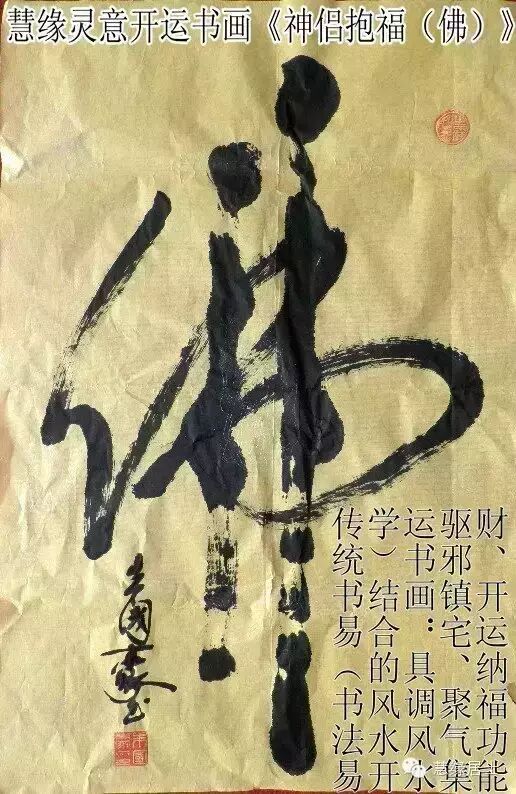 慧缘灵意开运书画《神侣抱福（佛）》
佛
传统书易（书法易
学）结合的风水开
运书画：具调风水
驱邪镇宅、聚气集
财、开运纳福功能
慧缘居士